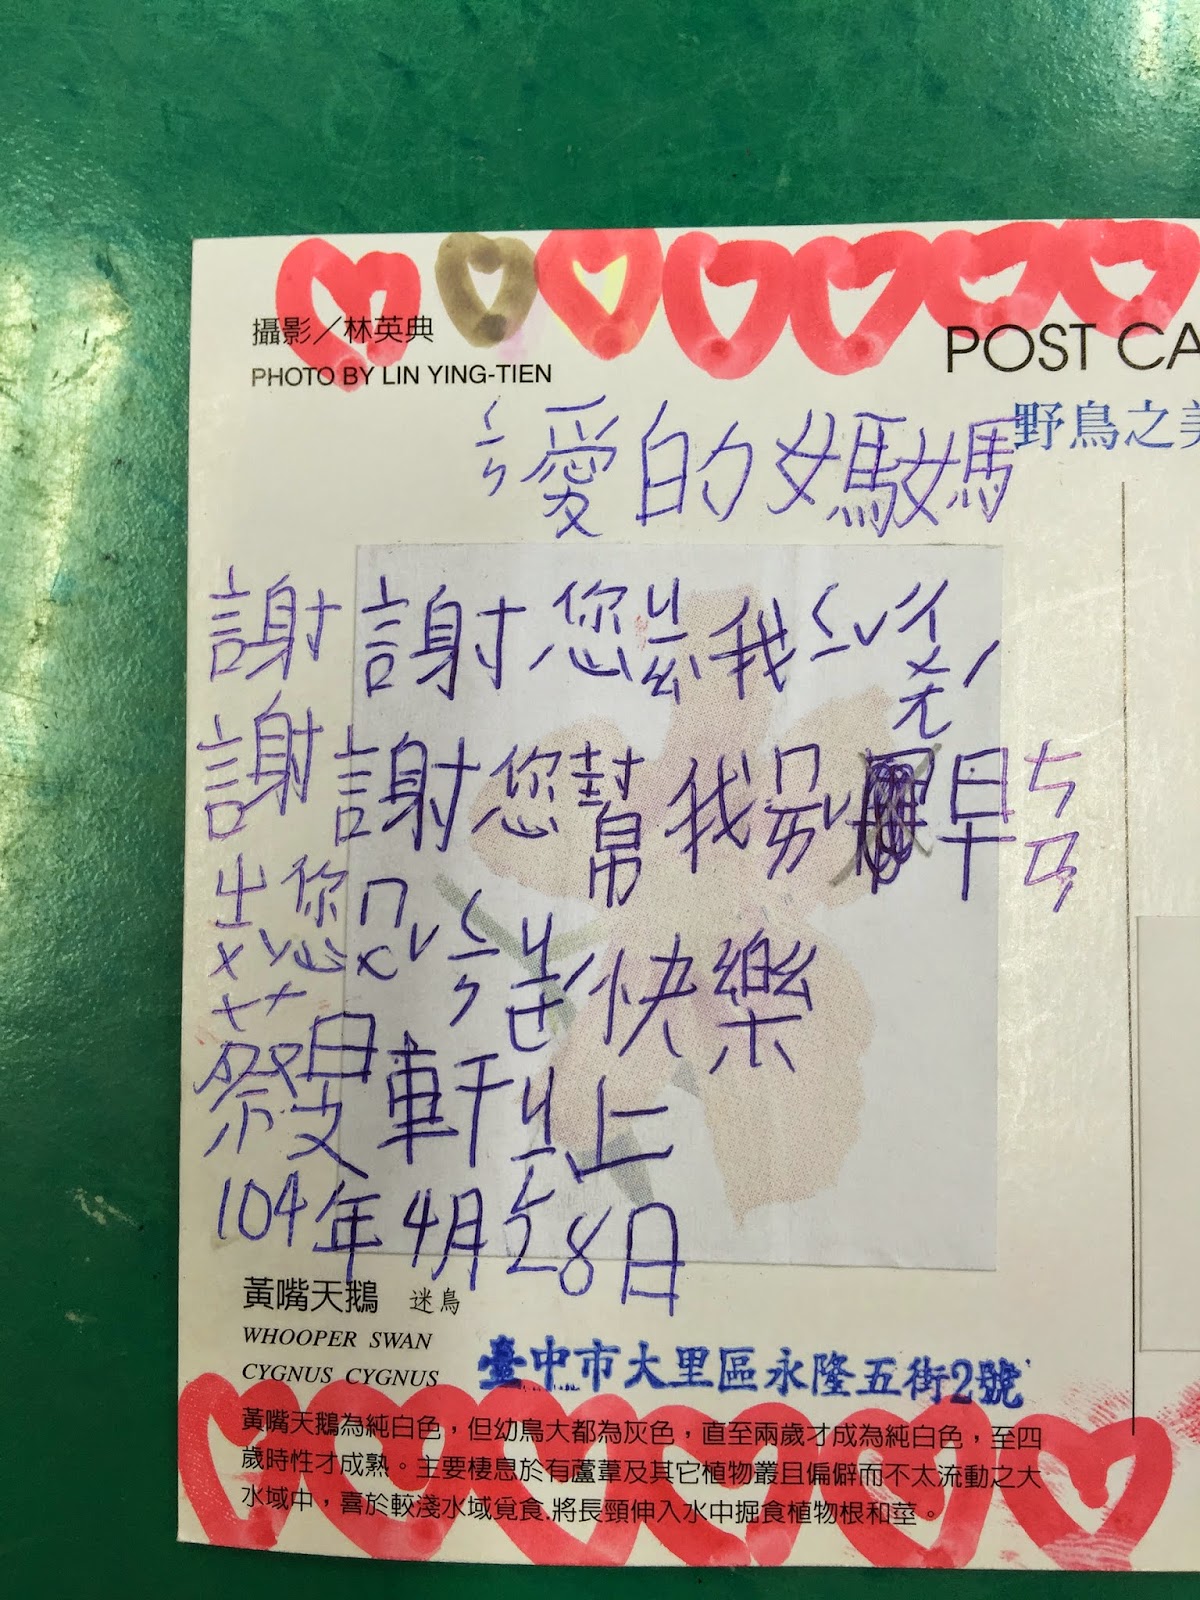 攝影／林英典
PHOTO BY LIN YING-TIEN
POST CA
野鳥之美
ㄑㄧㄣ愛的媽媽
謝謝您ㄐㄧㄠ我ㄑㄧˇㄔㄨㄤˊ
謝謝您幫我ㄇㄞˇ早ㄘㄢ
ㄓㄨˋ您ㄇㄨˇㄑㄧㄣㄐㄧㄝˊ快樂
蔡旻軒ㄐㄧㄥˋ上
104年4月28日
黃嘴天鵝 迷鳥
WHOOPER SWAN
CYGNUS CYGNUS
臺中市大里區永隆五街2號
黃嘴天鵝為純白色，但幼鳥大都為灰色，直至兩歲才成為純白色，至四
歲時性才成熟。主要棲息於有蘆葦及其它植物叢且偏僻而不太流動之大
水域中，喜於較淺水域覓食.將長頸伸入水中掘食植物根和莖。